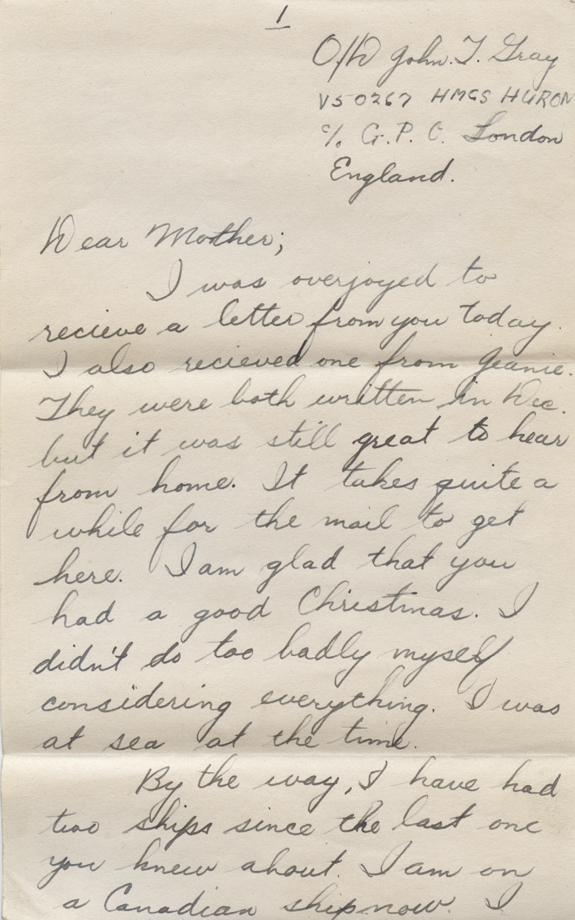 1
O/D John. T. Gray
V50267 HMCS HURON
c/o G.P.O. London
England.
Dear Mother;
I was overjoyed to
recieve a letter from you today.
I also recieved one from Jeanie.
They were both written in Dec.
but it was still great to hear
from home. It takes quite a
while for the mail to get
here. I am glad that you
had a good Christmas. I
didn't do too badly myself
considering everything. I was
at sea at the time.
By the way, I have had
two ships since the last one
you knew about. I am on
a Canadian ship now I